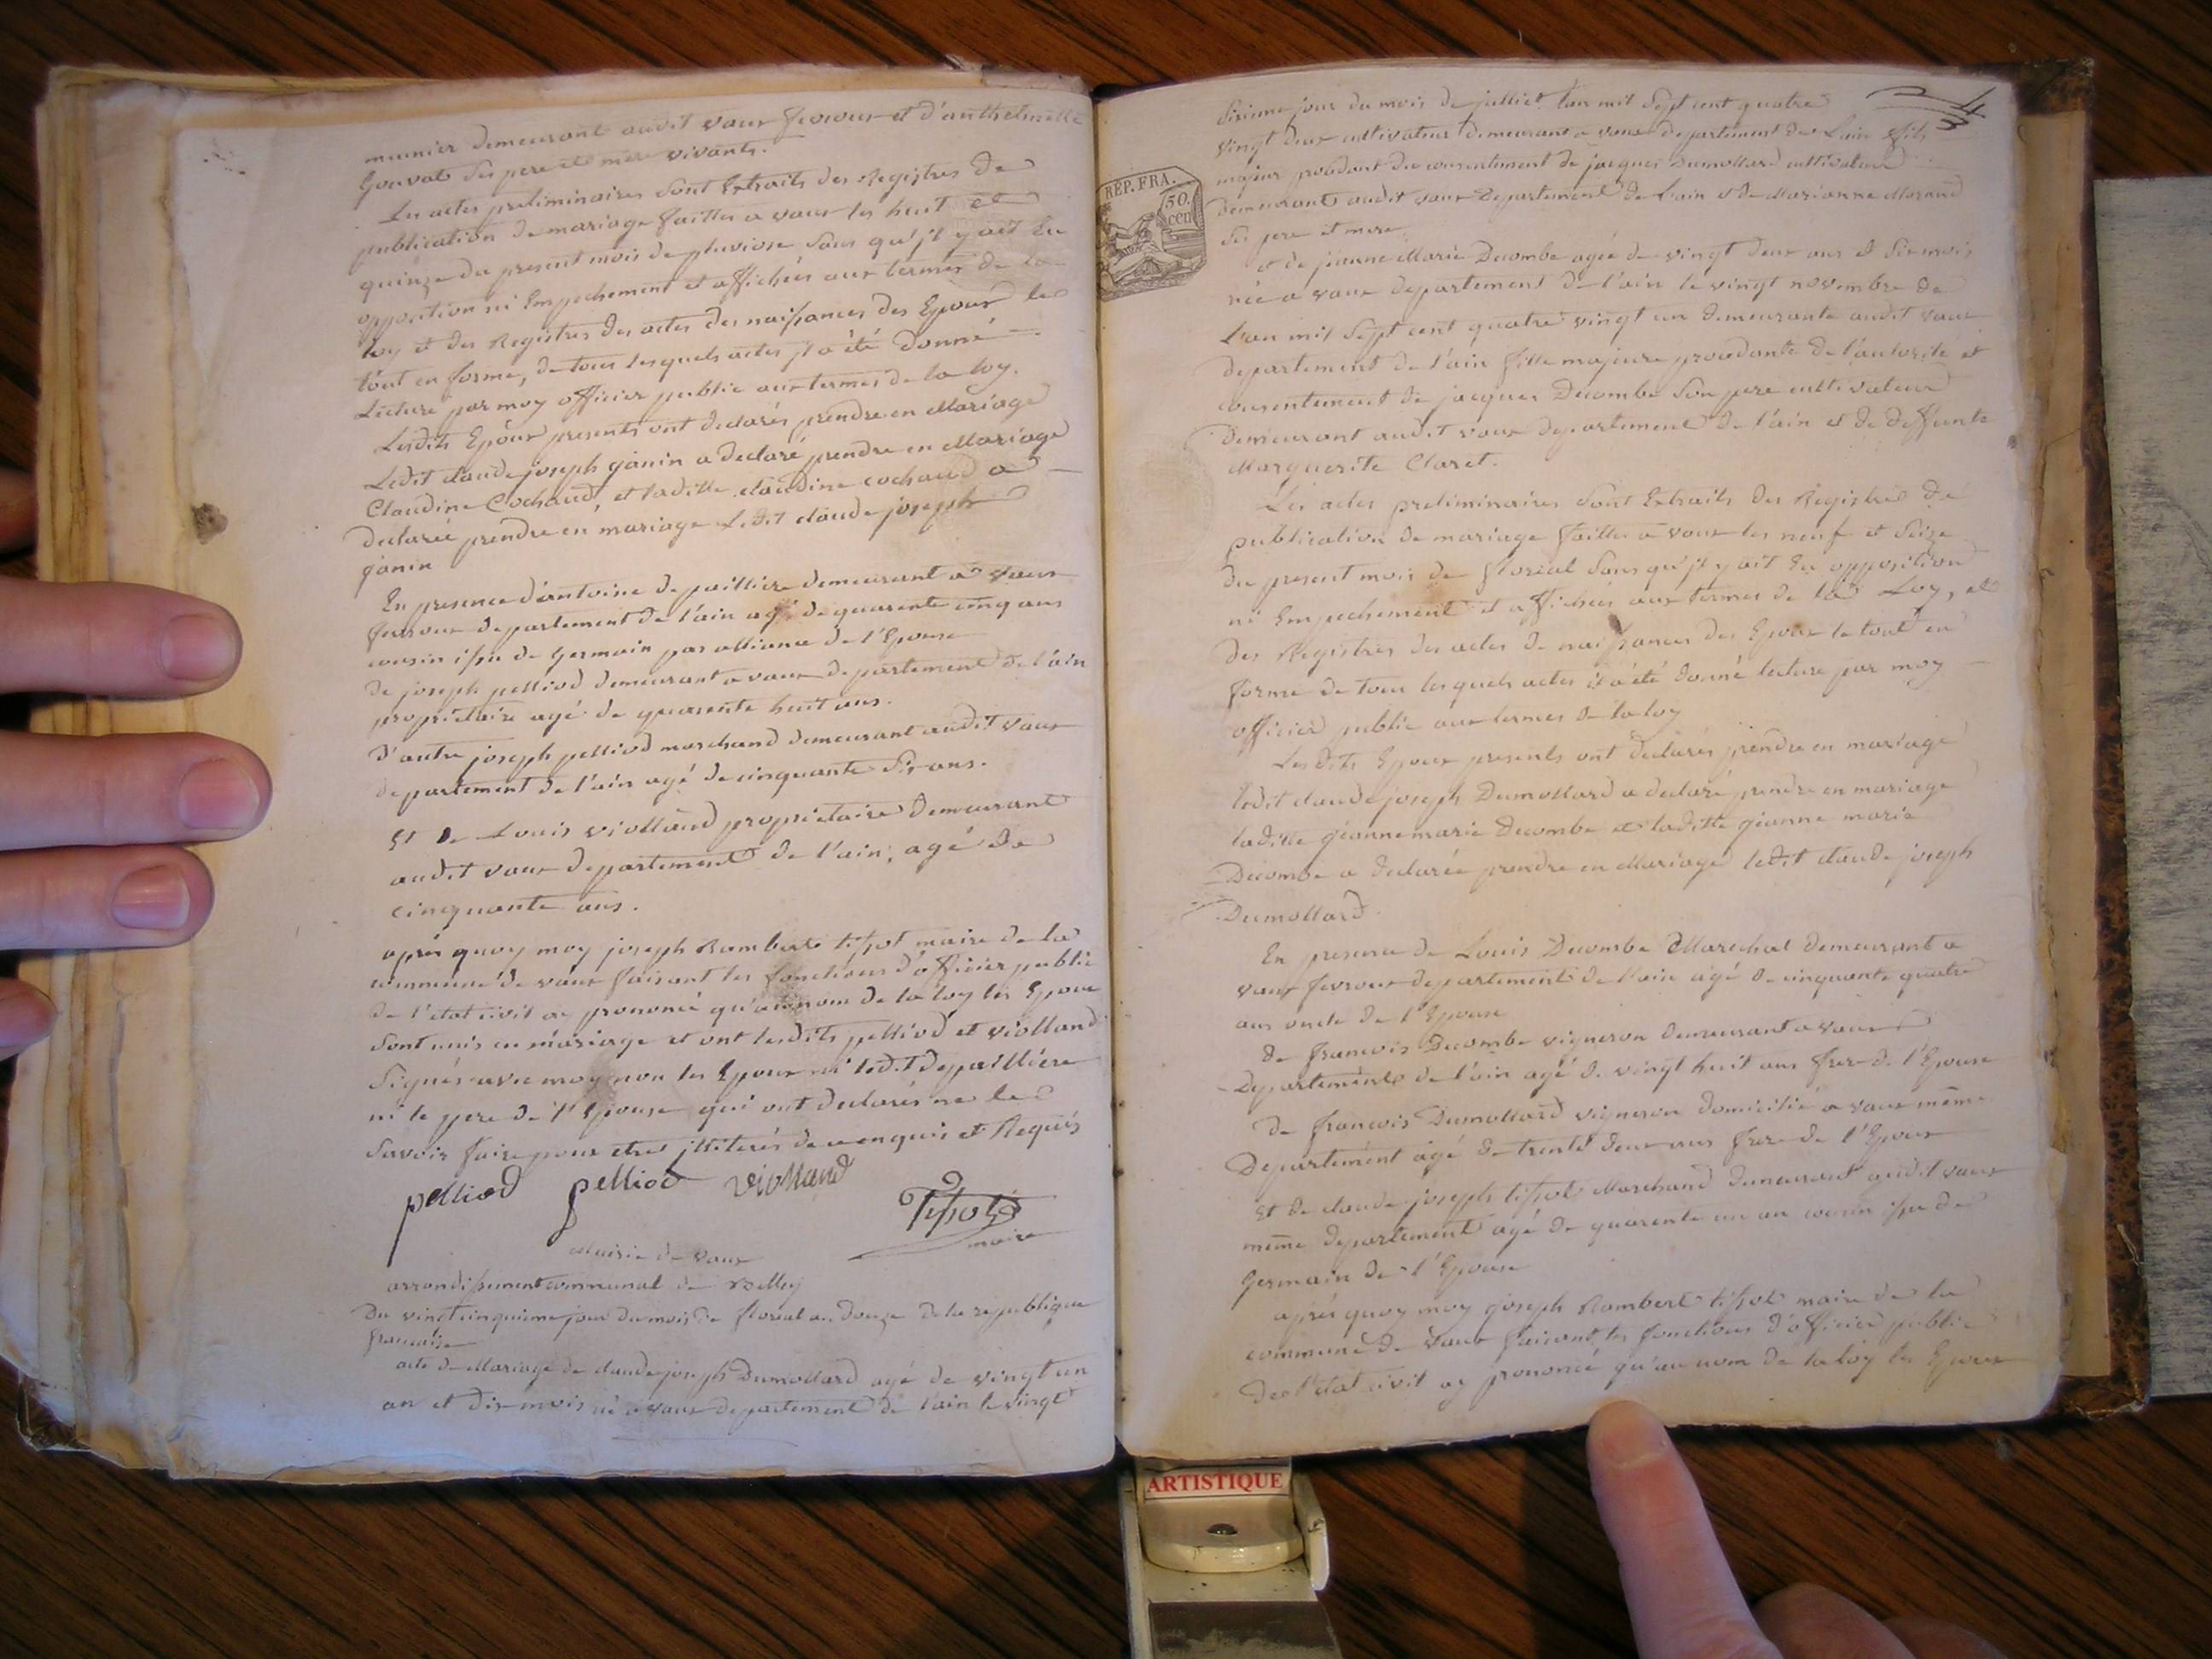 meunier demeurant audit vaux fevroux et d'anthelmette
Gonvat ses pere et mere vivants.
Les actes preliminaires sont Extraits des Registres de
publication de mariage faittes a vaux les huit et
quinze du present mois de pluviose sans qu'jl y ait Eu
opposition ni Empechement et affichées aux termes de la
loy et des Registres des actes des naissances des Epoux le
tout en forme, de tous lesquels actes jl a été donné
Lecture par moy officier public aux termes de la loy.
Lesdits Epoux presents ont declarés prendre en Mariage
Ledit claude joseph janin a declaré prendre en Mariage
Claudine Cochaud, et laditte claudine cochaud a
declarée prendre en mariage Ledit claude joseph
janin
En presence d'antoine depaillière demeurant a vaux
fevroux departement de l'ain agé de quarente cinq ans
cousin issu de germain par alliance de l'Epouse
de joseph pelliod demeurant a vaux departement de l'ain
propriétaire agé de quarente huit ans.
d'autre joseph pelliod marchand demeurant audit vaux
departement de l'ain agé de cinquante six ans.
Et de Louis violland propriétaire demeurant
audit vaux departement de l'ain, agé de
cinquante ans.
après quoy moy joseph Rambert tissot maire de la
commune de vaux faisant les fonctions d'officier public
de l'etat civil ay prononcé qu'au nom de la loy les Epoux
sont unis en mariage et ont lesdits pelliod et violland
signés avec moy non les Epoux ni ledit depaillière
ni le pere de l'Epouse qui ont declarés ne le
savoir faire pour etre jlliterés de ce enquis et Requis
pelliod pelliod violland
Tissot
maire
Mairie de vaux
arrondissement communal de Belley
Du vingt cinquieme jour du mois de floreal an douze de la republique
francaise
acte de Mariage de claude joseph Dumollard agé de vingt un
an et dix mois né a vaux departement de l'ain le vingt
4
REP. FRA.
50.
cen
sixieme jour du mois de julliet l'an mil sept cent quatre
vingt deux cultivateur demeurant a vaux departement de Lain fils
majeur procedant du consentement de jacques Dumollard cultivateur
demeurant audit vaux Departement de Lain et de Marianne Morand
ses pere et mere.
et de jeanne Marie Decombe agée de vingt deux ans et six mois
née a vaux departement de l'ain le vingt novembre de
L'an mil sept cent quatre vingt un demeurante audit vaux
departement de l'ain fille majeure procedante de l'autorité et
consentement de jacques Decombe son pere cultivateur
demeurant audit vaux departement de l'ain et de deffunte
Marguerite Claret.
Les actes preliminaires sont Extraits des Registres de
publication de mariage faittes a vaux les neuf et seize
du present mois de floreal sans qu'jl y ait Eu opposition
ni Empechement et affichées aux termes de la Loy, et
des Registres des actes de naissances des Epoux le tout en
forme de tous lesquels actes il a été donné lecture par moy
officier public aux termes de la loy
Lesdits Epoux presents ont declarés prendre en mariage
ledit claude joseph Dumollard a declaré prendre en mariage
laditte jeanne marie Decombe et laditte jeanne marie
Decombe a declarée prendre en Mariage ledit claude joseph
Dumollard.
En presence de Louis Decombe Marechal demeurant a
vaux fevroux departement de l'ain agé de cinquante quatre
ans oncle de l'Epouse
de francois Decombe vigneron demeurant a vaux
Departement de l'ain agé de vingt huit ans frere de l'Epouse
de francois Dumollard vigneron domicilié a vaux même
Departement agé de trente deux ans frere de l'Epoux
Et de claude joseph tissot Marchand demeurant audit vaux
même departement agé de quarente un an cousin issu de
Germain de l'Epouse
après quoy moy joseph Rambert tissot maire de la
commune de vaux faisant les fonctions d'officier public
de l'etat civil ay prononcé qu'au nom de la loy les Epoux
ARTISTIQUE